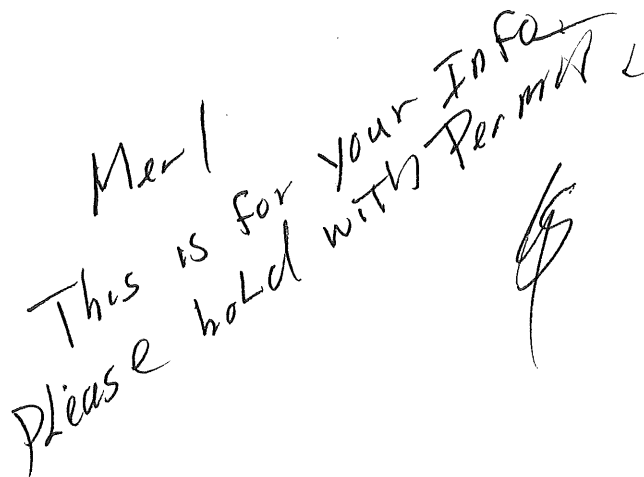 Merl
This is for your Info
please hold with Permit